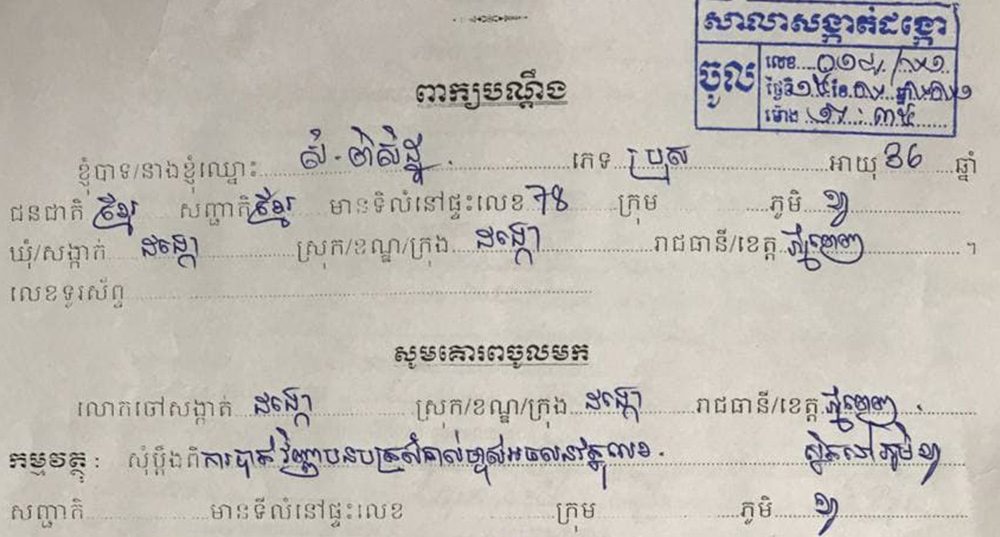 សាលាសង្កាត់ដង្កោ
ចូល
លេខ.....០១៨៤/......
ថ្ងៃទី១៥ខែ......ឆ្នាំ២០២១
ម៉ោង ១៦ : ៣៥
ពាក្យបណ្ដឹង
ខ្ញុំបាទ/នាងខ្ញុំឈ្មោះ សំ ភេទ ប្រុស អាយុ 36 ឆ្នាំ
ជនជាតិ ខ្មែរ សញ្ជាតិ ខ្មែរ មានទីលំនៅផ្ទះលេខ 78 ក្រុម ភូមិ ខ្វា
ឃុំ/សង្កាត់ ដង្កោ ស្រុក/ខណ្ឌ/ក្រុង ដង្កោ រាជធានី/ខេត្ត ភ្នំពេញ ។
លេខទូរស័ព្ទ
សូមគោរពចូលមក
លោកចៅសង្កាត់ ដង្កោ ស្រុក/ខណ្ឌ/ក្រុង ដង្កោ រាជធានី/ខេត្ត ភ្នំពេញ .
កម្មវត្ថុ : សុំប្ដឹងពីការបាត់វិញ្ញាបនបត្រសំគាល់ម្ចាស់អចលនវត្ថុលេខ. ស្ថិតនៅភូមិ ខ្វា
សញ្ជាតិ មានទីលំនៅផ្ទះលេខ ក្រុម ភូមិ ខ្វា